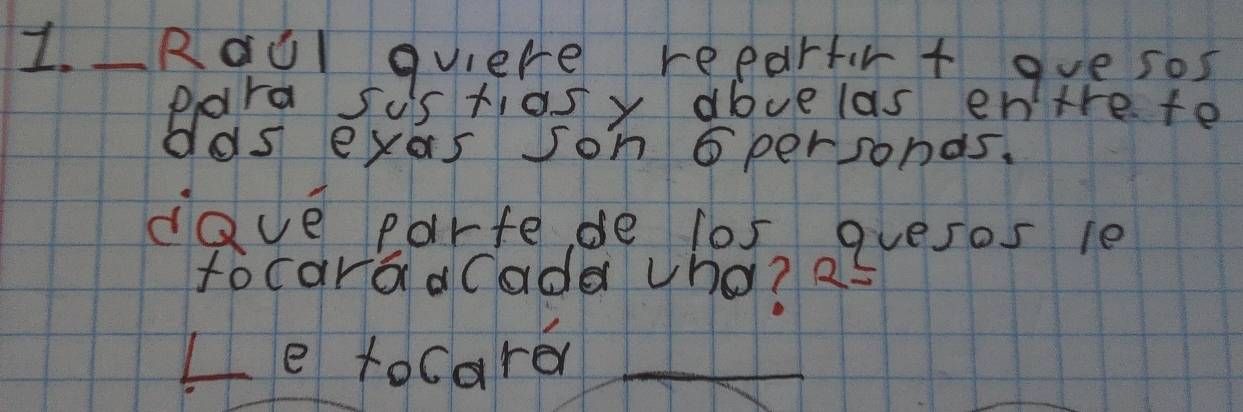 1. _ Raúl quiere repartir 7 quesos
para sus tias y abuelas entre to
das eyas son 6 personas.
¿Qué parte de los quesos le
tocará a cada una? R=
Le tocará ____